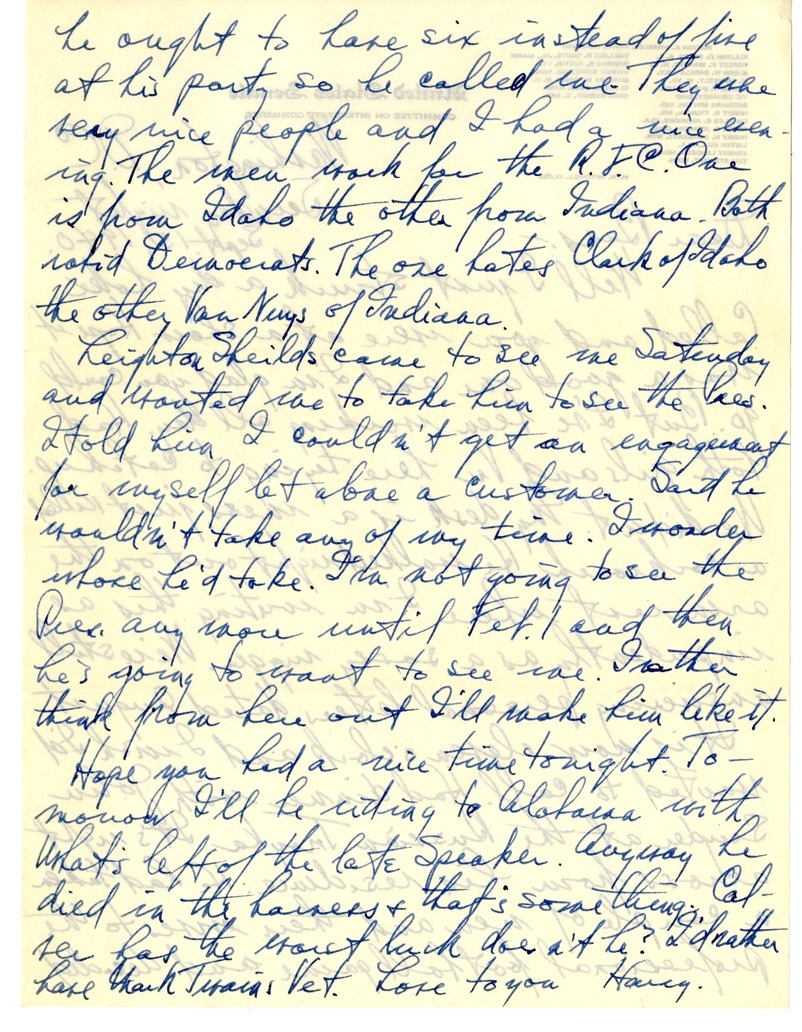 he ought to have six instead of five
at his party so he called me. They were
very nice people and I had a nice even-
ing. The men work for the R.F.C. One
is from Idaho the other from Indiana. Both
rabid Democrats. The one hates Clark of Idaho
the other Van Nuys of Indiana.
Leighton Sheilds came to see me Saturday
and wanted me to take him to see the Pres.
I told him I couldn't get an engagement
for myself let alone a customer. Said he
wouldn't take any of my time. I wonder
whose he'd take. I'm not going to see the
Pres. any more until Feb. 1 and then
he's going to want to see me. I rather
think from here out I'll make him like it.
Hope you had a nice time tonight. To-
morrow I'll be riding to Alabama with
what's left of the late Speaker. Anyway he
died in the harness & that's something. Cal-
ver has the worst luck doesn't he? I'd rather
have Mark Twains Vet. Love to you Harry.